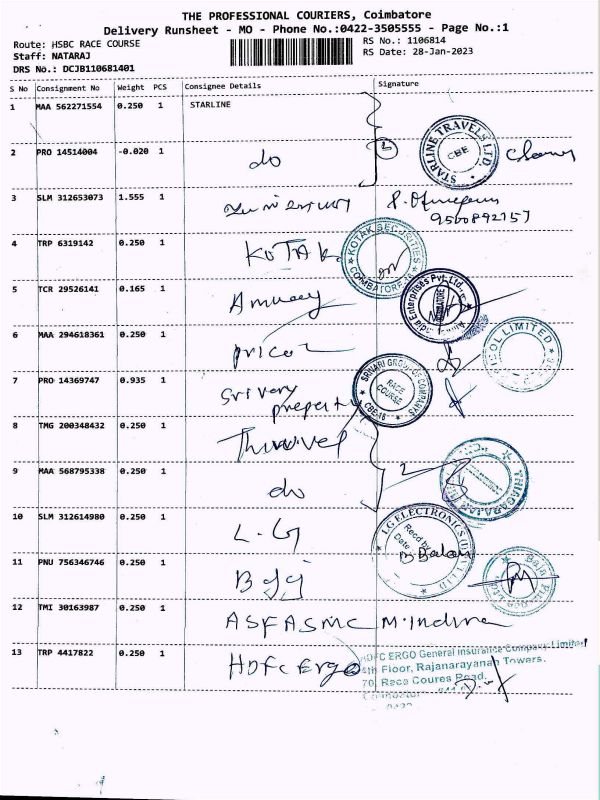 THE PROFESSIONAL COURIERS, Coimbatore
Delivery Runsheet - MO - Phone No.:0422-3505555 - Page No.:1
Route: HSBC RACE COURSE
RS No.: 1106814
Staff: NATARAJ
RS Date: 28-Jan-2023
DRS No.: DCJB110681401
S No Consignment No Weight PCS Consignee Details Signature
1 MAA 562271554 0.250 1 STARLINE
STARLINE TRAVELS LTD. CBE
2 PRO 14514004 -0.020 1 do
3 SLM 312653073 1.555 1
9500892157
4 TRP 6319142 0.250 1 KOTAK
KOTAK SECURITIES COIMBATORE-18
5 TCR 29526141 0.165 1 Amway
Enterprises Pvt. Ltd.
6 MAA 294618361 0.250 1 pricol
PRICOL LIMITED
7 PRO 14369747 0.935 1 Srivary
property
SRIVARI GROUP OF COMPANYS RACE COURSE CBE-18
8 TMG 200348432 0.250 1
9 MAA 568795338 0.250 1 do
2
10 SLM 312614980 0.250 1 L.G
LG ELECTRONICS (I) PVT LTD
Recd by
Date
B Balan
11 PNU 756346746 0.250 1
Bajaj
12 TMI 30163987 0.250 1 ASFASMC M.Indira
13 TRP 4417822 0.250 1 HDfc Ergo
HDFC ERGO General Insurance Company Limited
4th Floor, Rajanarayanan Towers.
70, Race Coures Road.